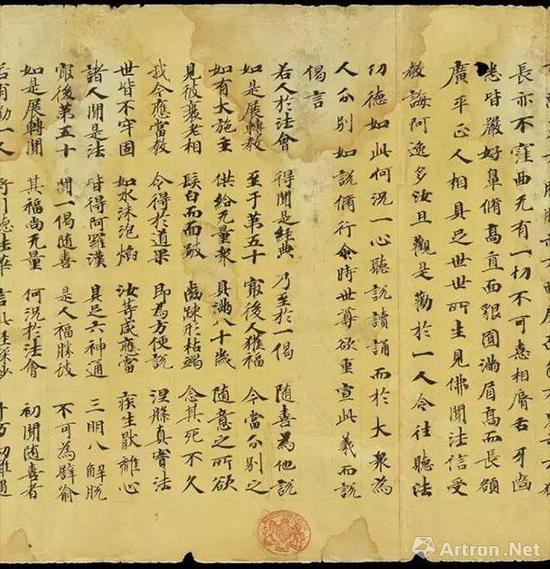 長亦不窪曲无有一切不可憙相脣舌牙齒
悉皆嚴好鼻脩高直面貌圓滿眉高而長額
廣平正人相具足世世所生見佛聞法信受
教誨阿逸多汝且觀是勸於一人令往聽法
功德如此何況一心聽說讀誦而於大衆為
人分別如說脩行尒時世尊欲重宣此義而說
偈言
若人於法會 得聞是經典 乃至於一偈 隨喜為他說
如是展轉教 至于第五十 㝡後人獲福 今當分別之
如有大施主 供給无量衆 具滿八十歲 隨意之所欲
見彼衰老相 髮白而面皺 齒踈形枯竭 念其死不久
我今應當教 令得於道果 即為方便說 涅槃真實法
世皆不牢固 如水沫泡焰 汝等咸應當 疾生猒離心
諸人聞是法 皆得阿羅漢 具足六神通 三明八解脫
㝡後第五十 聞一偈隨喜 是人福勝彼 不可為譬喻
如是展轉聞 其福尚无量 何況於法會 初聞隨喜者
Artron.Net
雅昌艺术网